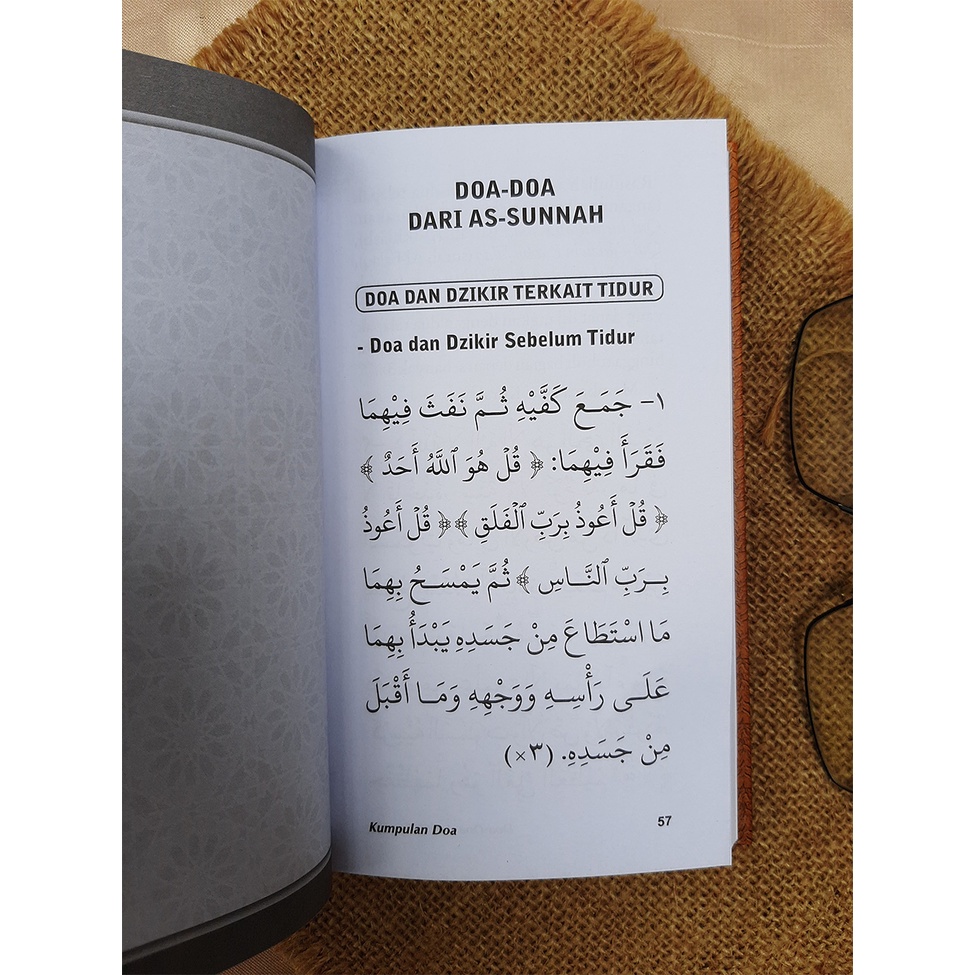 DOA-DOA
DARI AS-SUNNAH
DOA DAN DZIKIR TERKAIT TIDUR
- Doa dan Dzikir Sebelum Tidur
١- جَمَـعَ كَفَّيْهِ ثُـمَّ نَفَثَ فِيْهِمَا
فَقَرَأَ فِيْهِمَا: ﴿ قُلْ هُوَ ٱللَّهُ أَحَدٌ ﴾
﴿ قُلْ أَعُوذُ بِرَبِّ ٱلْفَلَقِ ﴾ ﴿ قُلْ أَعُوذُ
بِـرَبِّ ٱلنَّـاسِ ﴾ ثُمَّ يَمْسَـحُ بِهِمَا
مَا اسْتَطَاعَ مِنْ جَسَدِهِ يَبْدَأُ بِهِمَا
عَلَـى رَأْسِـهِ وَوَجْهِهِ وَمَـا أَقْبَلَ
مِنْ جَسَدِهِ. (٣×)
Kumpulan Doa
57